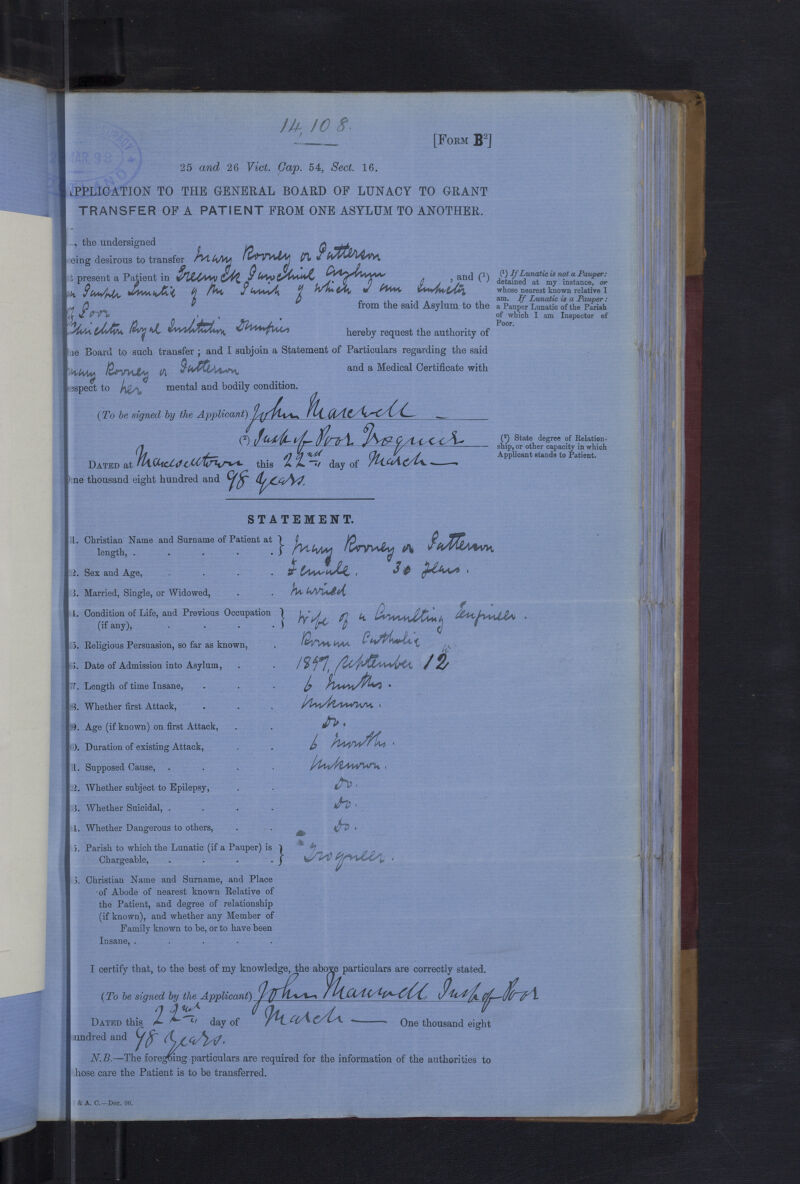 14,108.
[FORM B²]
MAR. 98
25 and 26 Vict. Cap. 54, Sect. 16.
APPLICATION TO THE GENERAL BOARD OF LUNACY TO GRANT
TRANSFER OF A PATIENT FROM ONE ASYLUM TO ANOTHER.
, the undersigned
being desirous to transfer Mary Rooney or Patterson
at present a Patient in Greenock Parochial Asylum, and (¹)
a Pauper Lunatic of the Parish of which I am Inspector
of Poor from the said Asylum to the
Crichton Royal Institution Dumfries hereby request the authority of
the Board to such transfer; and I subjoin a Statement of Particulars regarding the said
Mary Rooney or Patterson and a Medical Certificate with
respect to her mental and bodily condition.
(¹) If Lunatic is not a Pauper:
detained at my instance, or
whose nearest known relative I
am. If Lunatic is a Pauper:
a Pauper Lunatic of the Parish
of which I am Inspector of
Poor.
(To be signed by the Applicant) John Maxwell
(²) Insp of Poor Troqueer
(²) State degree of Relation-
ship, or other capacity in which
Applicant stands to Patient.
DATED at Maxwelltown this 22nd day of March
One thousand eight hundred and 98 years.
STATEMENT.
1. Christian Name and Surname of Patient at length, . . . . . } Mary Rooney or Patterson
2. Sex and Age, . . . Female. 30 years.
3. Married, Single, or Widowed, . . Married
4. Condition of Life, and Previous Occupation (if any), . . . . } Wife of a Consulting Engineer.
5. Religious Persuasion, so far as known, . Roman Catholic
6. Date of Admission into Asylum, . . 1897, September 12
7. Length of time Insane, . . . 6 Months.
8. Whether first Attack, . . . Unknown.
9. Age (if known) on first Attack, . . Do.
10. Duration of existing Attack, . . 6 months.
11. Supposed Cause, . . . . Unknown.
12. Whether subject to Epilepsy, . . Do.
13. Whether Suicidal, . . . . Do.
14. Whether Dangerous to others, . . Do.
15. Parish to which the Lunatic (if a Pauper) is Chargeable, . . . . . } Troqueer.
16. Christian Name and Surname, and Place
of Abode of nearest known Relative of
the Patient, and degree of relationship
(if known), and whether any Member of
Family known to be, or to have been
Insane, . . . . . .
I certify that, to the best of my knowledge, the above particulars are correctly stated.
(To be signed by the Applicant) John Maxwell Insp of Poor
DATED this 22nd day of March One thousand eight
hundred and 98 years.
N.B.—The foregoing particulars are required for the information of the authorities to
whose care the Patient is to be transferred.
& A. C.—Dec. 96.